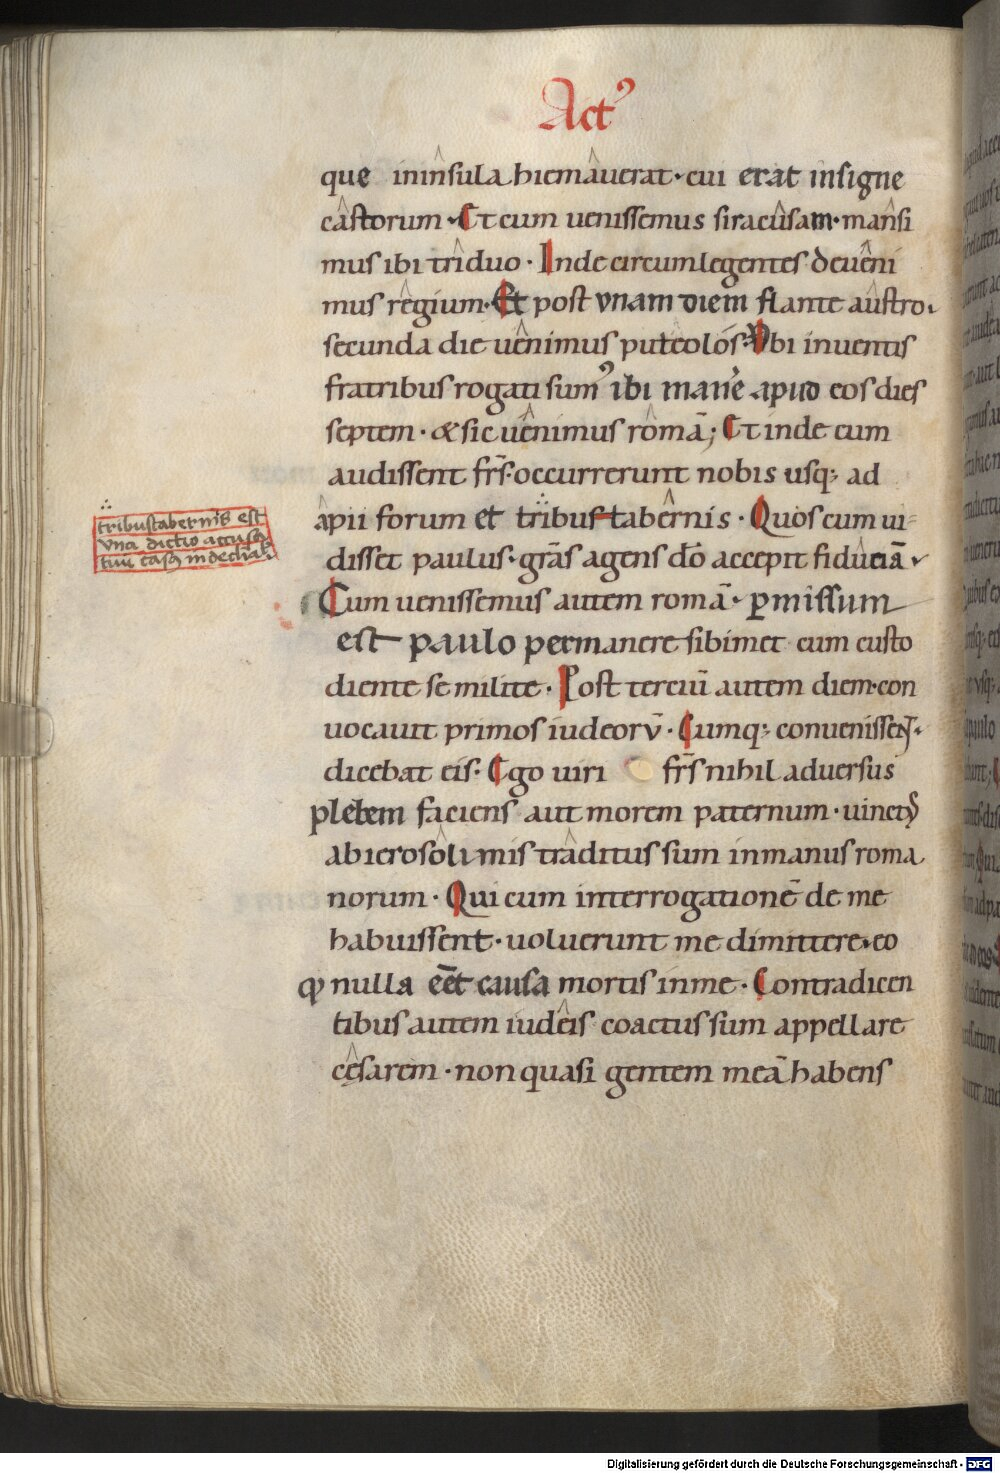 Actꝰ
que ininsula hiemauerat· cui erat insigne
castorum· Et cum uenissemus siracusam· mansi
mus ibi triduo· Inde circumlegentes deueni
mus regium· Et post vnam diem flante austro·
secunda die uenimus puteolos· Vbi inuentis
fratribus rogati sumꝰ ibi manere apud eos dies
septem· & sic uenimus romā; Et inde cum
audissent frs̄ occurrerunt nobis usq; ad
apii forum et tribus tabernis· Quos cum ui
disset paulus· grās agens dō accepit fiduciā·
tribustabernis est
vna dictio accusa
tiui casꝰ indeclinab·
Cum uenissemus autem romā· ꝑmissum
est paulo permanere sibimet cum custo
diente se milite· Post terciū autem diem· con
uocauit primos iudeorū· Cumq; conuenissent·
dicebat eis· Ego uiri frs̄ nihil aduersus
plebem faciens aut morem paternum· uinctꝰ
abierosolimis traditus sum inmanus roma
norum· Qui cum interrogationē de me
habuissent· uoluerunt me dimittere· eo
qꝫ nulla eēt causa mortis inme· Contradicen
tibus autem iudeis coactus sum appellare
cęsarem· non quasi gentem meā habens
Digitalisierung gefördert durch die Deutsche Forschungsgemeinschaft - DFG